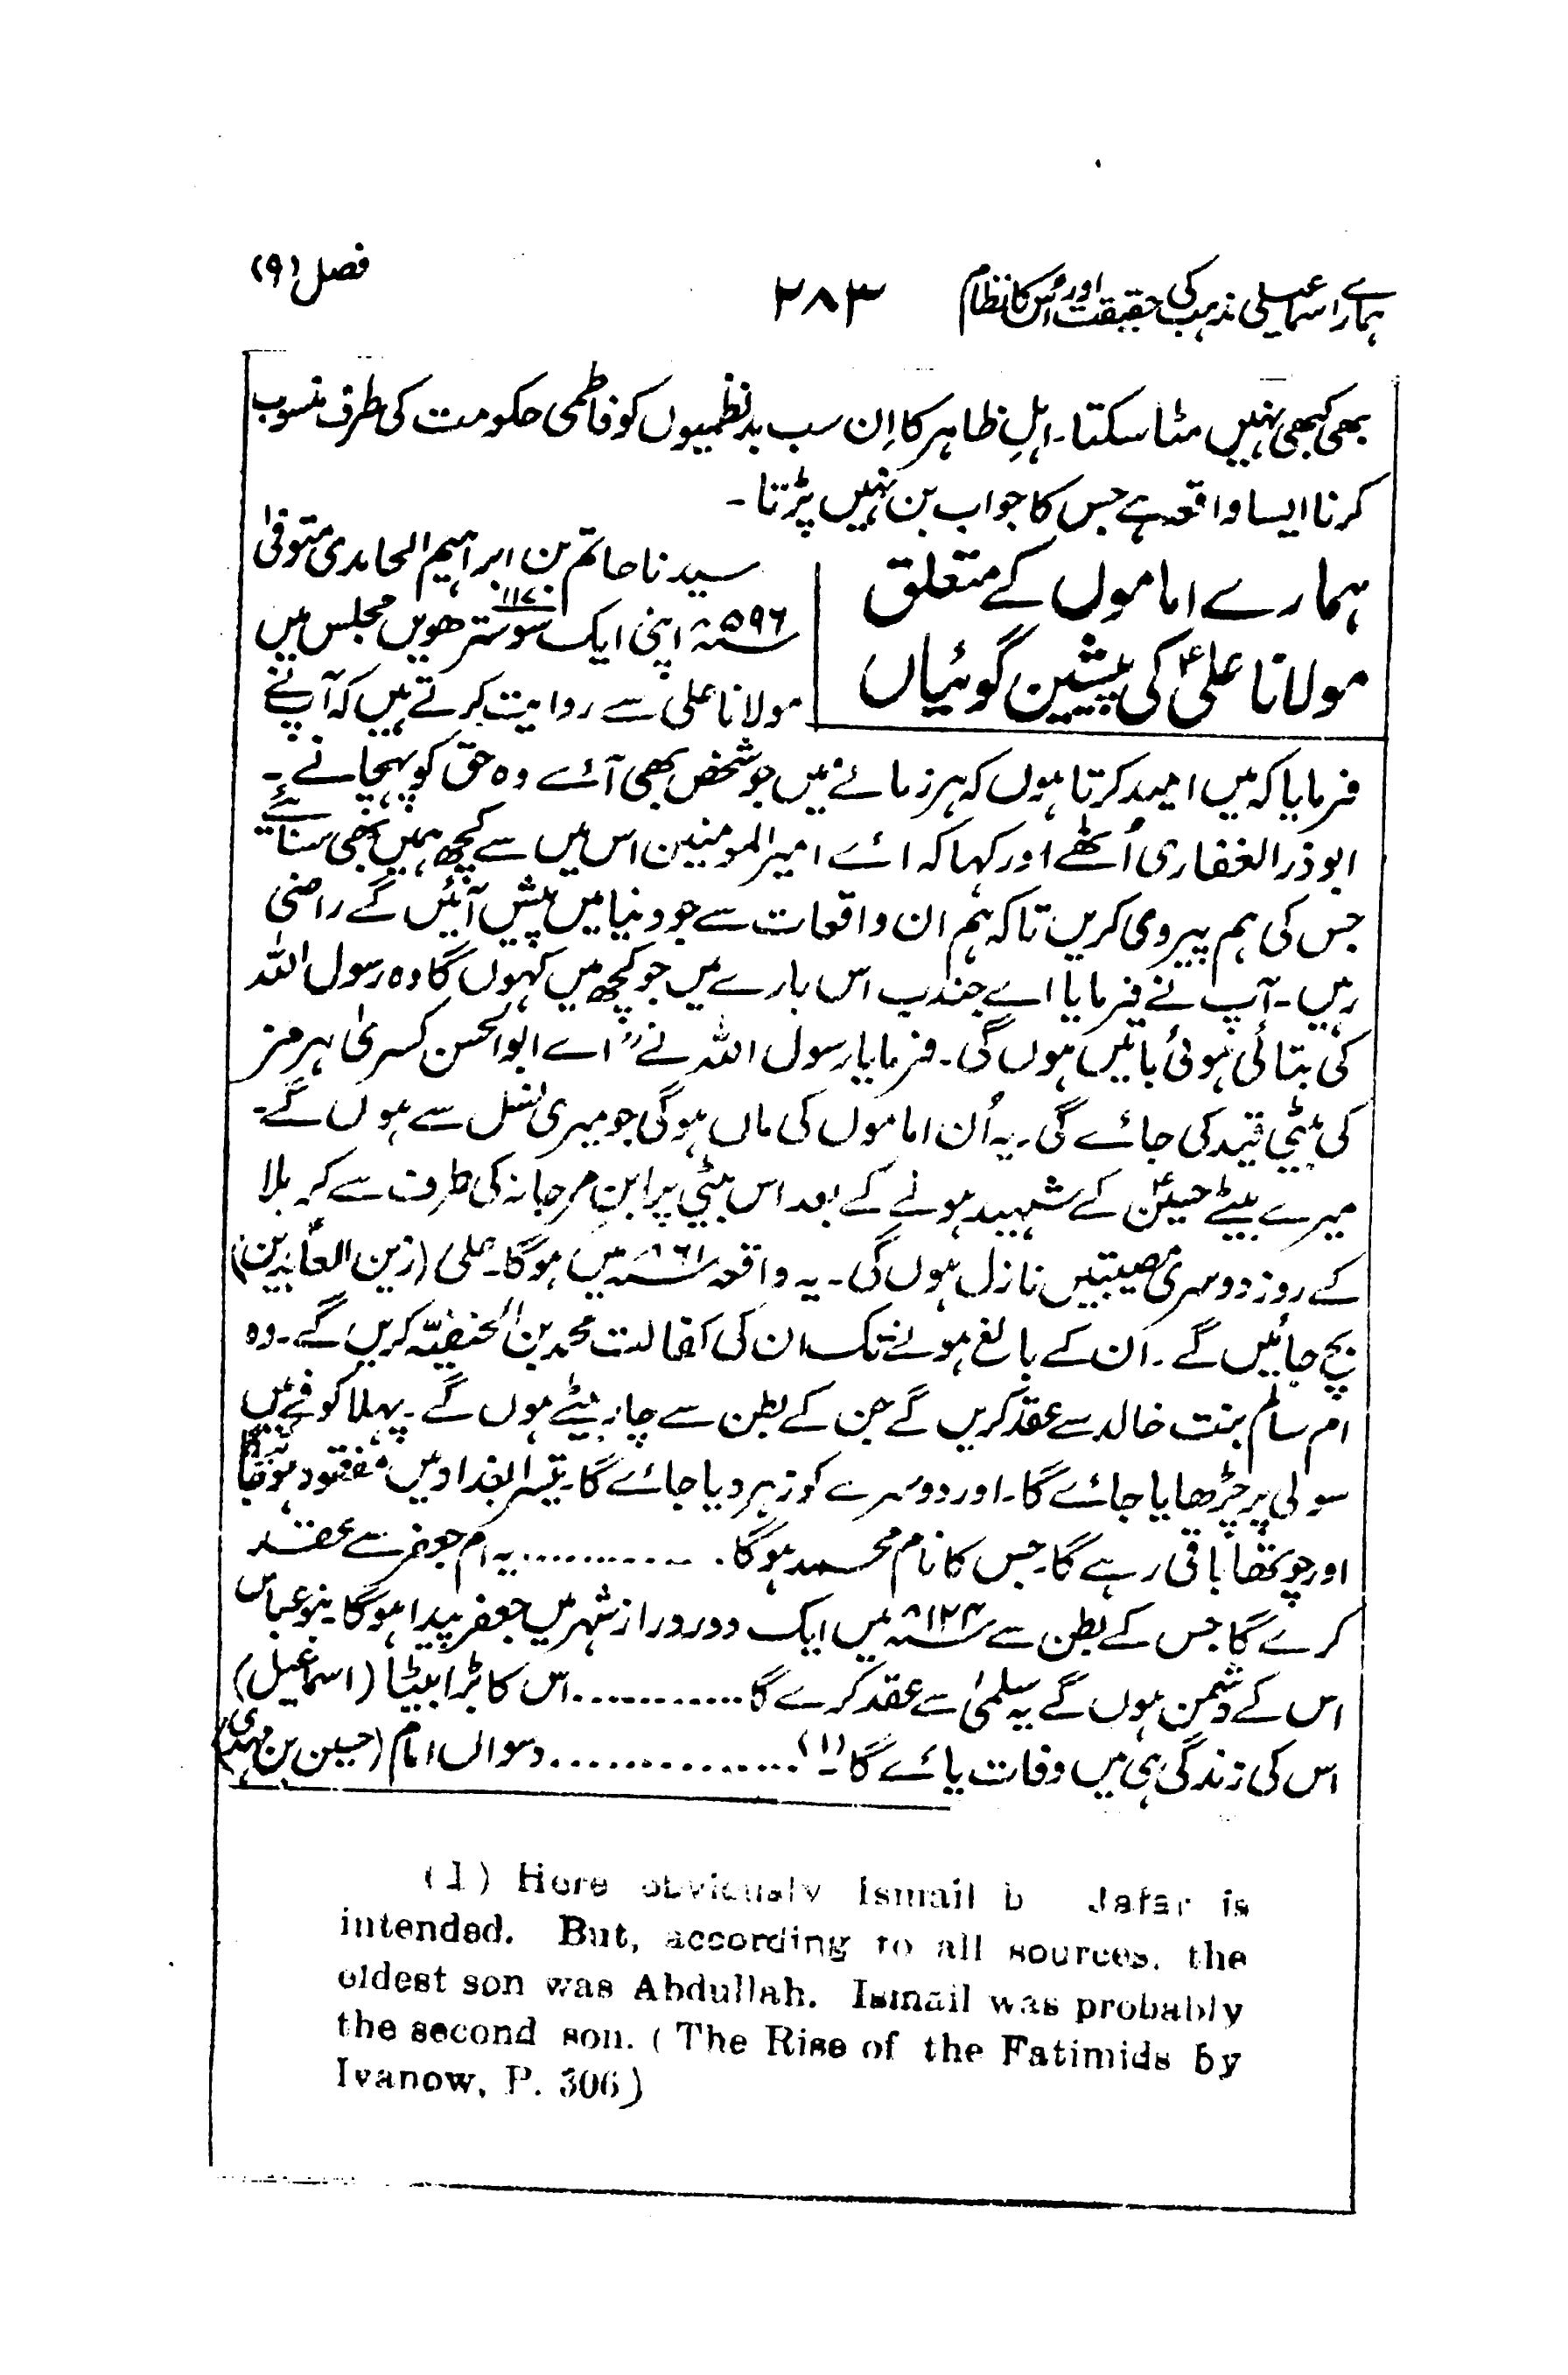 ہمارے اسماعیلی مذہب کی حقیقت اور اُس کا نظام ۲۸۳ فصل (۹)
بھی کبھی نہیں مٹا سکتا۔ اہلِ ظاہر کا اِن سب بدنظمیوں کو فاطمی حکومت کی طرف منسوب
کرنا ایسا واقعہ ہے جس کا جواب بن نہیں پڑتا۔
ہمارے اماموں کے متعلق
مولانا علیؑ کی پیشین گوئیاں
سیدنا حاتم بن ابراہیم الحامدی متوفیٰ
۵۹۶ھ اپنی ایک سو سترھویں ۱۱۷۰ مجلس میں
مولانا علی سے روایت کرتے ہیں کہ آپ نے
فرمایا کہ میں امید کرتا ہوں کہ ہر زمانے میں جو شخص بھی آئے وہ حق کو پہچانے۔
ابوذر الغفاری اُٹھے اور کہا کہ ائے امیر المومنین اس میں سے کچھ ہمیں بھی سنائیے
جس کی ہم پیروی کریں تاکہ ہم ان واقعات سے جو دنیا میں پیش آئیں گے راضی
رہیں۔ آپ نے فرمایا اے جندب اس بارے میں جو کچھ میں کہوں گا وہ رسول اللہ
کی بتائی ہوئی باتیں ہوں گی۔ فرمایا رسول اللہ نے ”اے ابوالحسن کسریٰ ہرمز
کی بیٹی قید کی جائے گی۔ یہ اُن اماموں کی ماں ہوگی جو میری نسل سے ہوں گے۔
میرے بیٹے حسینؑ کے شہید ہونے کے بعد اس بیٹی پر ابنِ مرجانہ کی طرف سے کربلا
کے روز دوسری مصیبتیں نازل ہوں گی۔ یہ واقعہ ۶۱ھ میں ہوگا۔ علی (زین العابدین)
بچ جائیں گے۔ ان کے بالغ ہونے تک ان کی کفالت محمد بن الحنفیّہ کریں گے۔ وہ
ام سالم بنت خالد سے عقد کریں گے جن کے بطن سے چار بیٹے ہوں گے۔ پہلا کوفے میں
سولی پر چڑھایا جائے گا۔ اور دوسرے کو زہر دیا جائے گا۔ تیسرا بغداد میں مفقود ہو جائیگا
اور چوتھا باقی رہے گا۔ جس کا نام محمد ہوگا. ............ یہ ام جعفر سے عقد
کرے گا جس کے بطن سے ۱۲۴ھ میں ایک دور دراز شہر میں جعفر پیدا ہوگا۔ بنو عباس
اس کے دشمن ہوں گے یہ سلمیٰ سے عقد کرے گا ............ اس کا بڑا بیٹا (اسماعیل)
اس کی زندگی ہی میں وفات پائے گا۔ (۱) ............... دسواں امام (حسین بن مہدی)
(1) Here obviously Ismail b Jafar is
intended. But, according to all sources, the
oldest son was Abdullah. Ismail was probably
the second son. (The Rise of the Fatimids by
Ivanow, P. 306)